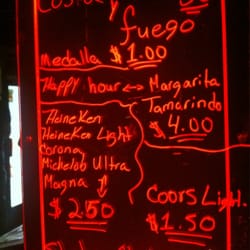 fuego
Medalla $1.00
Happy hour ↔ Margarita
Tamarindo
$4.00
Heineken
Heineken Light
Corona
Michelob Ultra
Magna
$2.50
Coors Light.
$1.50